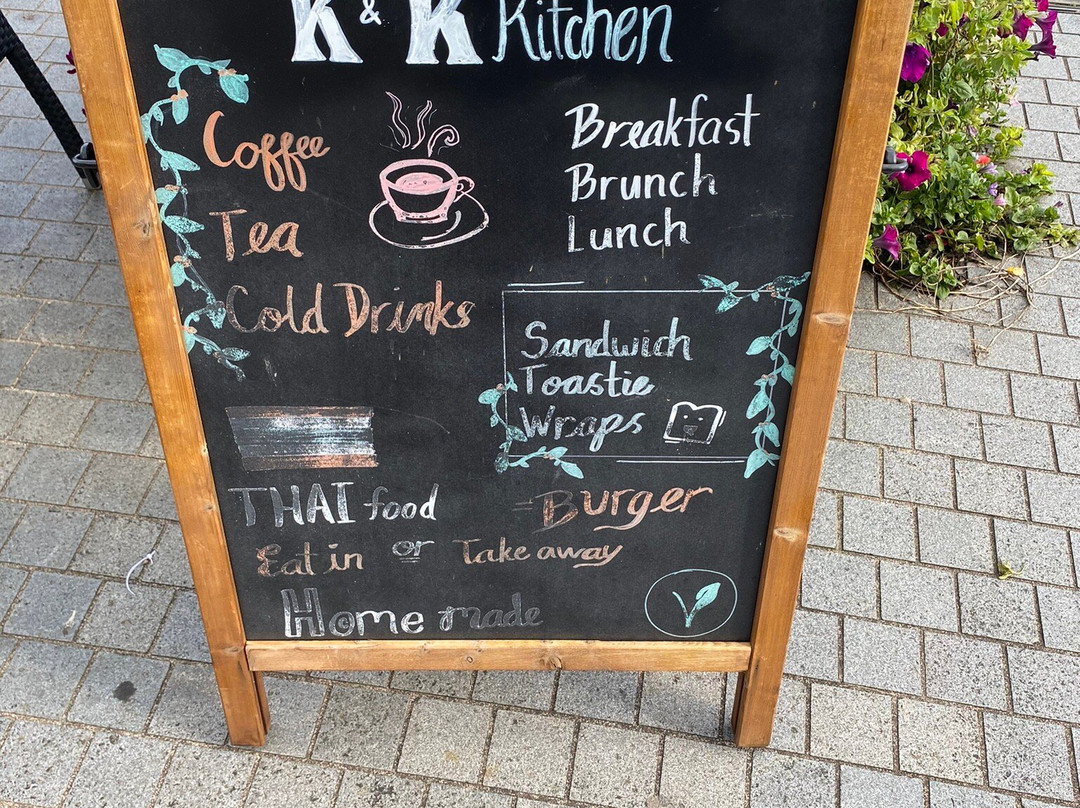 K & K Kitchen
Coffee
Tea
Cold Drinks
Breakfast
Brunch
Lunch
Sandwich
Toastie
Wraps
THAI food
Burger
Eat in or Take away
Home made
V